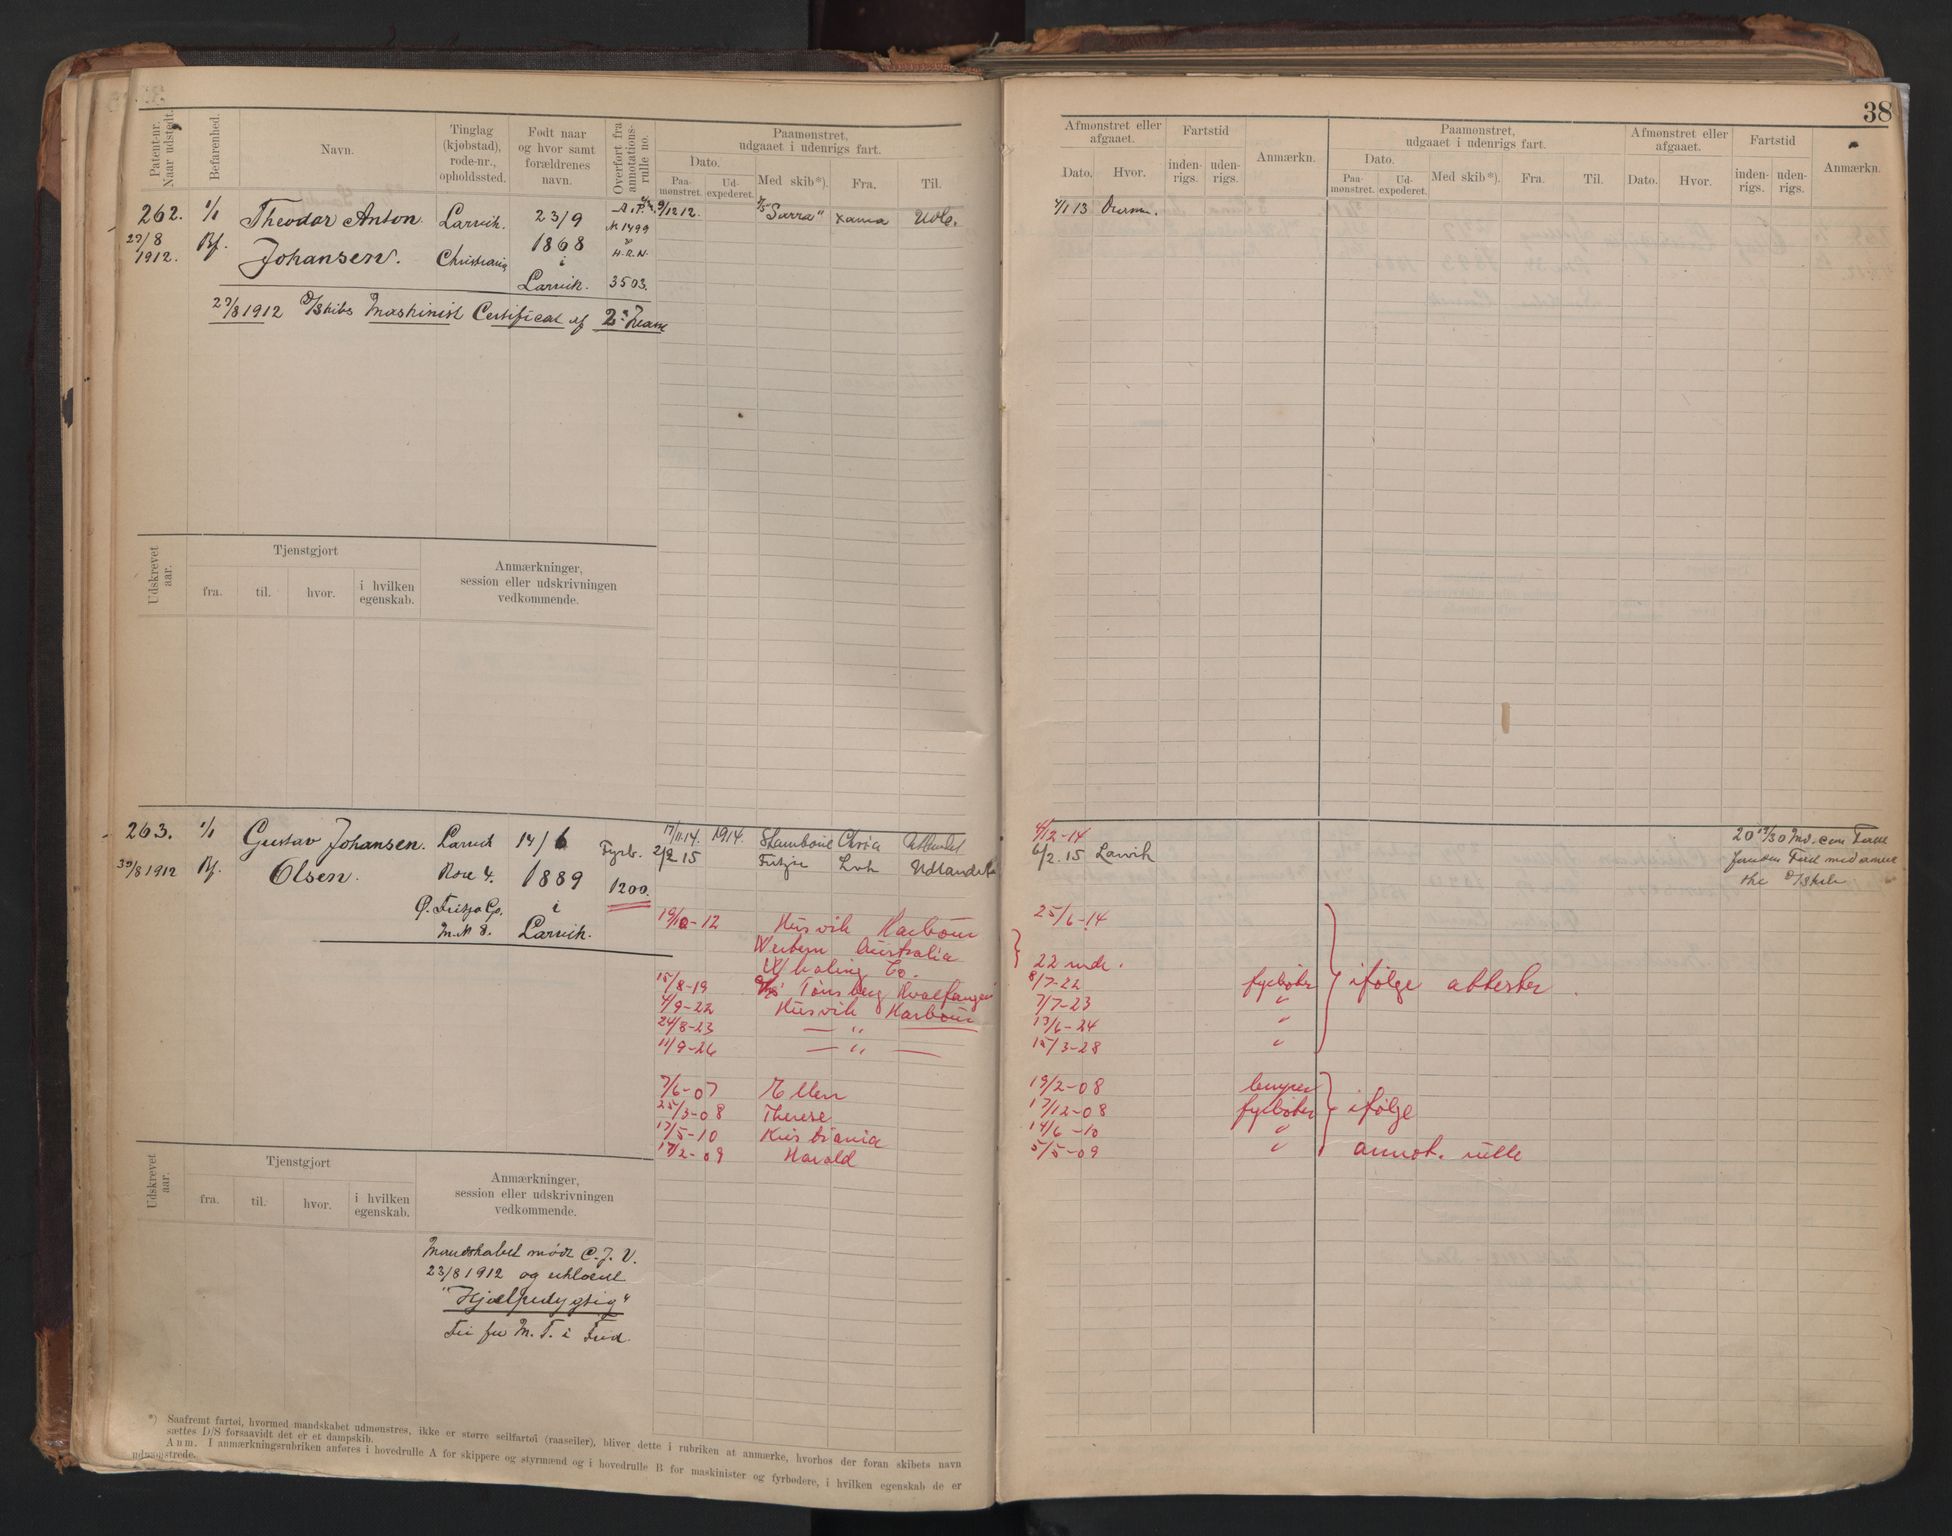 38
Patent-nr. Naar udstedt.
Befarenhed.
Navn.
Tinglag (kjøbstad), rode-nr., opholdssted.
Født naar og hvor samt forældrenes navn.
Overført fra annotations-rulle no.
Paamønstret, udgaaet i udenrigs fart.
Dato.
Paa-mønstret.
Ud-expederet.
Med skib*).
Fra.
Til.
Afmønstret eller afgaaet.
Dato.
Hvor.
Fartstid
inden-rigs.
uden-rigs.
Anmærkn.
Paamønstret, udgaaet i udenrigs fart.
Dato.
Paa-mønstret.
Ud-expederet.
Med skib*).
Fra.
Til.
Afmønstret eller afgaaet.
Dato.
Hvor.
Fartstid
inden-rigs.
uden-rigs.
Anmærkn.
262. 1/1 Theodor Anton Larvik. 23/9 9/12 12. "Sarra" Xania Udl.
N 1499
29/8 1912. Bf. Johansen. Christiania 1868 i H.R.N.
Larvik. 3503.
4/1 13
29/8 1912 D/skibs Maskinist Certificat af 2den Klasse
Udskrevet aar.
Tjenstgjort
fra.
til.
hvor.
i hvilken egenskab.
Anmærkninger, session eller udskrivningen vedkommende.
263. 1/1 Gustav Johansen. Larvik 14/6 Fyrb. 17/11.14. 1914. Chria
30/8 1912 Bf. Olsen. Rode 4. 1889 1200. 2/2 15 Fritzøe Lvk Udlandet
Ø. Fritzø Gp. i
M.N 8. Larvik.
4/12-14
6/2.15 Larvik
20 19/30 Md.
19/10-12 Husvik Harbour 25/6-14
Western Australia
Whaling Co. 22 mdr.
15/8-19 Tønsberg Hvalfangeri 8/7-22 fyrbøter
4/9-22 Husvik Harbour 7/7-23 "
24/8-23 — " — 13/6-24 "
11/9-26 — " — 15/3-28 "
ifølge attester.
7/6-07 Ellen 19/2-08 lemper
25/3-08 Therese 17/12-08 fyrbøter
17/5-10 Kristiania 14/6-10 "
17/2-09 Harald 5/5-09 "
ifølge
annot. rulle
Udskrevet aar.
Tjenstgjort
fra.
til.
hvor.
i hvilken egenskab.
Anmærkninger, session eller udskrivningen vedkommende.
Mandskabet mødt C.J.V.
23/8 1912 og erklæret
"Hjælpedygtig"
Fri for M.T. i Fred.
*) Saafremt fartøi, hvormed mandskabet udmønstres, ikke er større seilfartøi (raaseiler), bliver dette i rubriken at anmærke, hvorhos der foran skibets navn
sættes D/S forsaavidt det er et dampskib.
Anm. I anmærkningsrubriken anføres i hovedrulle A for skippere og styrmænd og i hovedrulle B for maskinister og fyrbødere, i hvilken egenskab de er
udmønstrede.